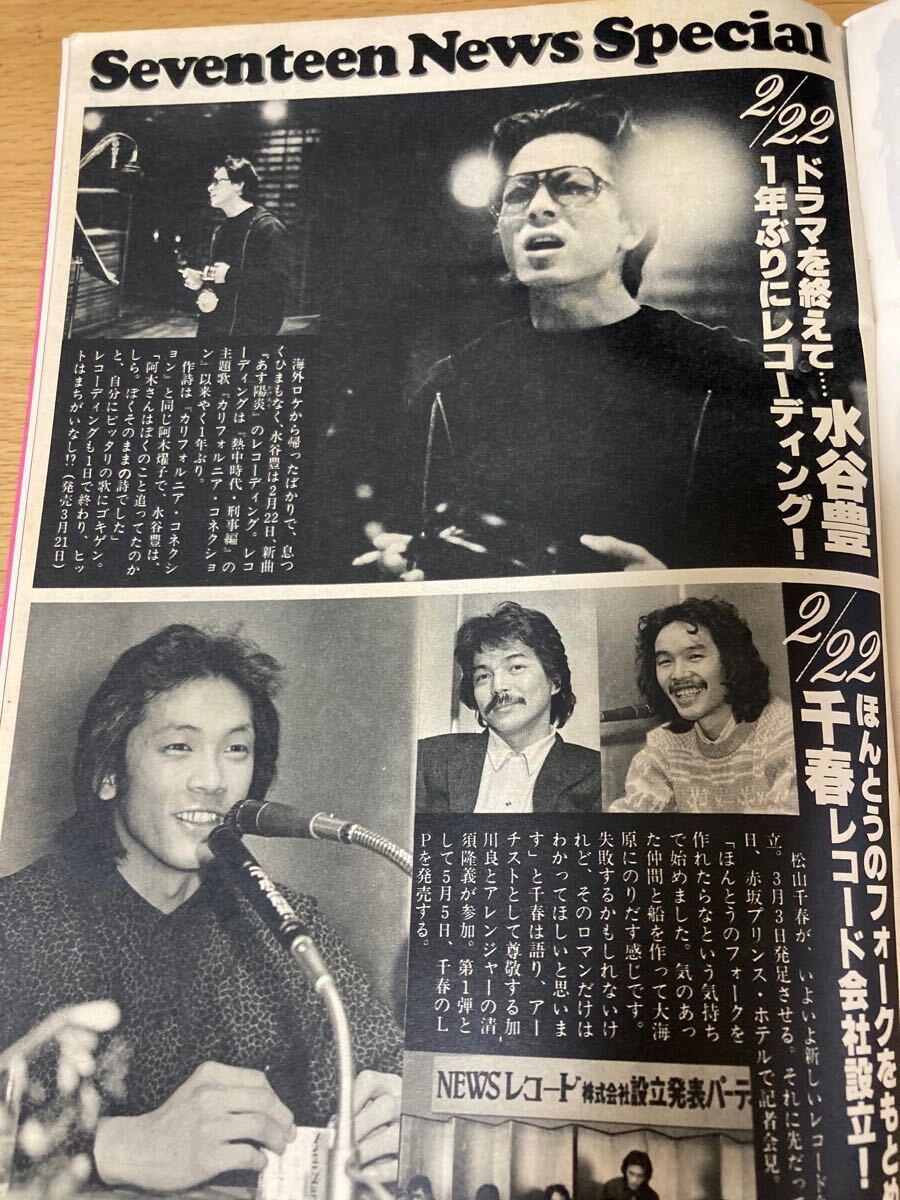 Seventeen News Special
2/22
ドラマを終えて…水谷豊
1年ぶりにレコーディング!
海外ロケから帰ったばかりで、息つ
くひまもなく、水谷豊は2月22日、新曲
『あす陽炎』のレコーディング。レコ
ーディングは『熱中時代・刑事編』の
主題歌『カリフォルニア・コネクショ
ン』以来やく1年ぶり。
作詩は『カリフォルニア・コネクシ
ョン』と同じ阿木燿子で、水谷豊は、
「阿木さんはぼくのこと追ってたのか
しら。ぼくそのままの詩でした」
と、自分にピッタリの歌にゴキゲン。
レコーディングも1日で終わり、ヒッ
トはまちがいなし!?(発売3月21日)
2/22
ほんとうのフォークをもとめ
千春レコード会社設立!
松山千春が、いよいよ新しいレコード
立。3月3日発足させる。それに先だっ
日、赤坂プリンス・ホテルで記者会見。
「ほんとうのフォークを
作れたらなという気持ち
で始めました。気のあっ
た仲間と船を作って大海
原にのりだす感じです。
失敗するかもしれないけ
れど、そのロマンだけは
わかってほしいと思いま
す」と千春は語り、アー
チストとして尊敬する加
川良とアレンジャーの清
須隆義が参加。第1弾と
して5月5日、千春のL
Pを発売する。
NEWSレコード株式会社設立発表パーテ